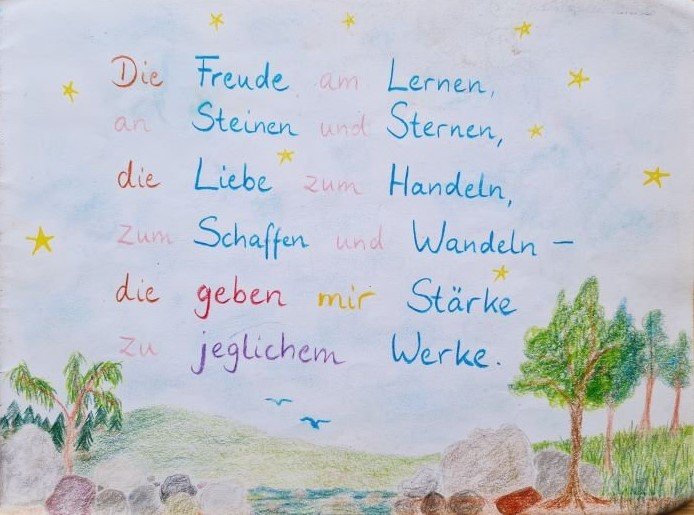 Die Freude am Lernen,
an Steinen und Sternen,
die Liebe zum Handeln,
zum Schaffen und Wandeln –
die geben mir Stärke
zu jeglichem Werke.